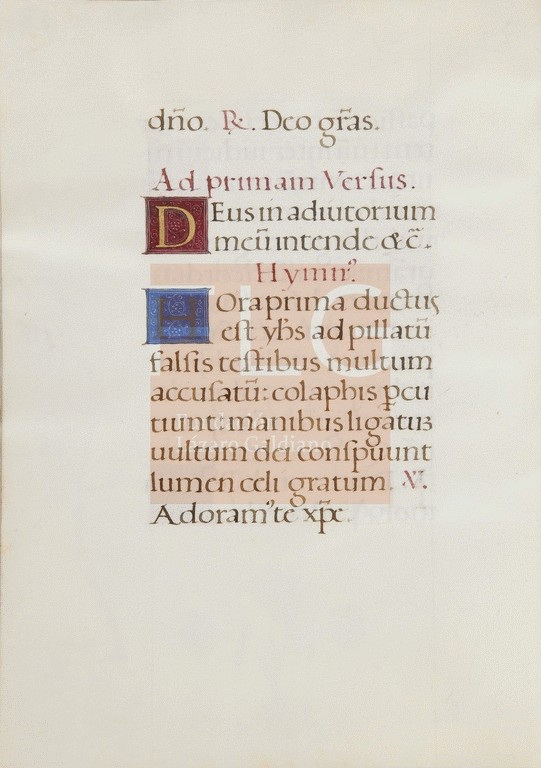 dn̄o. R̸. Deo gr̄as.
Ad primam Versus.
DEus in adiutorium
meū intende & c̄.
Hymnꝰ.
HOra prima ductus
est yhs ad pillatū
falsis testibus multum
accusatū: colaphis p̄cu
tiunt manibus ligatuꝫ
uultum dei conspuunt
lumen celi gratum. V̸.
Adoramꝰ te xp̄e.
FLG
Fundación
Lázaro Galdiano